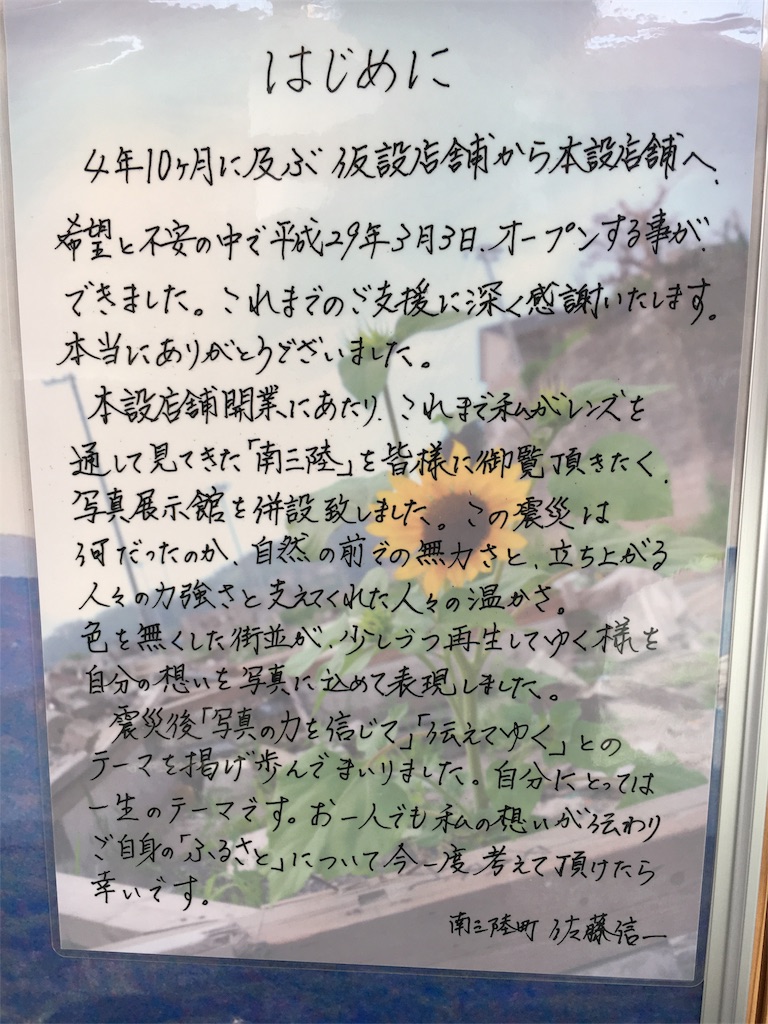 はじめに
4年10ヶ月に及ぶ仮設店舗から本設店舗へ、
希望と不安の中で平成29年3月3日、オープンする事が、
できました。これまでのご支援に深く感謝いたします。
本当にありがとうございました。
本設店舗開業にあたり、これまで私がレンズを
通して見てきた「南三陸」を皆様に御覧頂きたく、
写真展示館を併設致しました。この震災は
何だったのか、自然の前での無力さと、立ち上がる
人々の力強さと支えてくれた人々の温かさ。
色を無くした街並が、少しづつ再生してゆく様を
自分の想いを写真に込めて表現しました。
震災後「写真の力を信じて」「伝えてゆく」との
テーマを掲げ歩んでまいりました。自分にとっては
一生のテーマです。お一人でも私の想いが伝わり
ご自身の「ふるさと」について今一度考えて頂けたら
幸いです。
南三陸町 佐藤信一